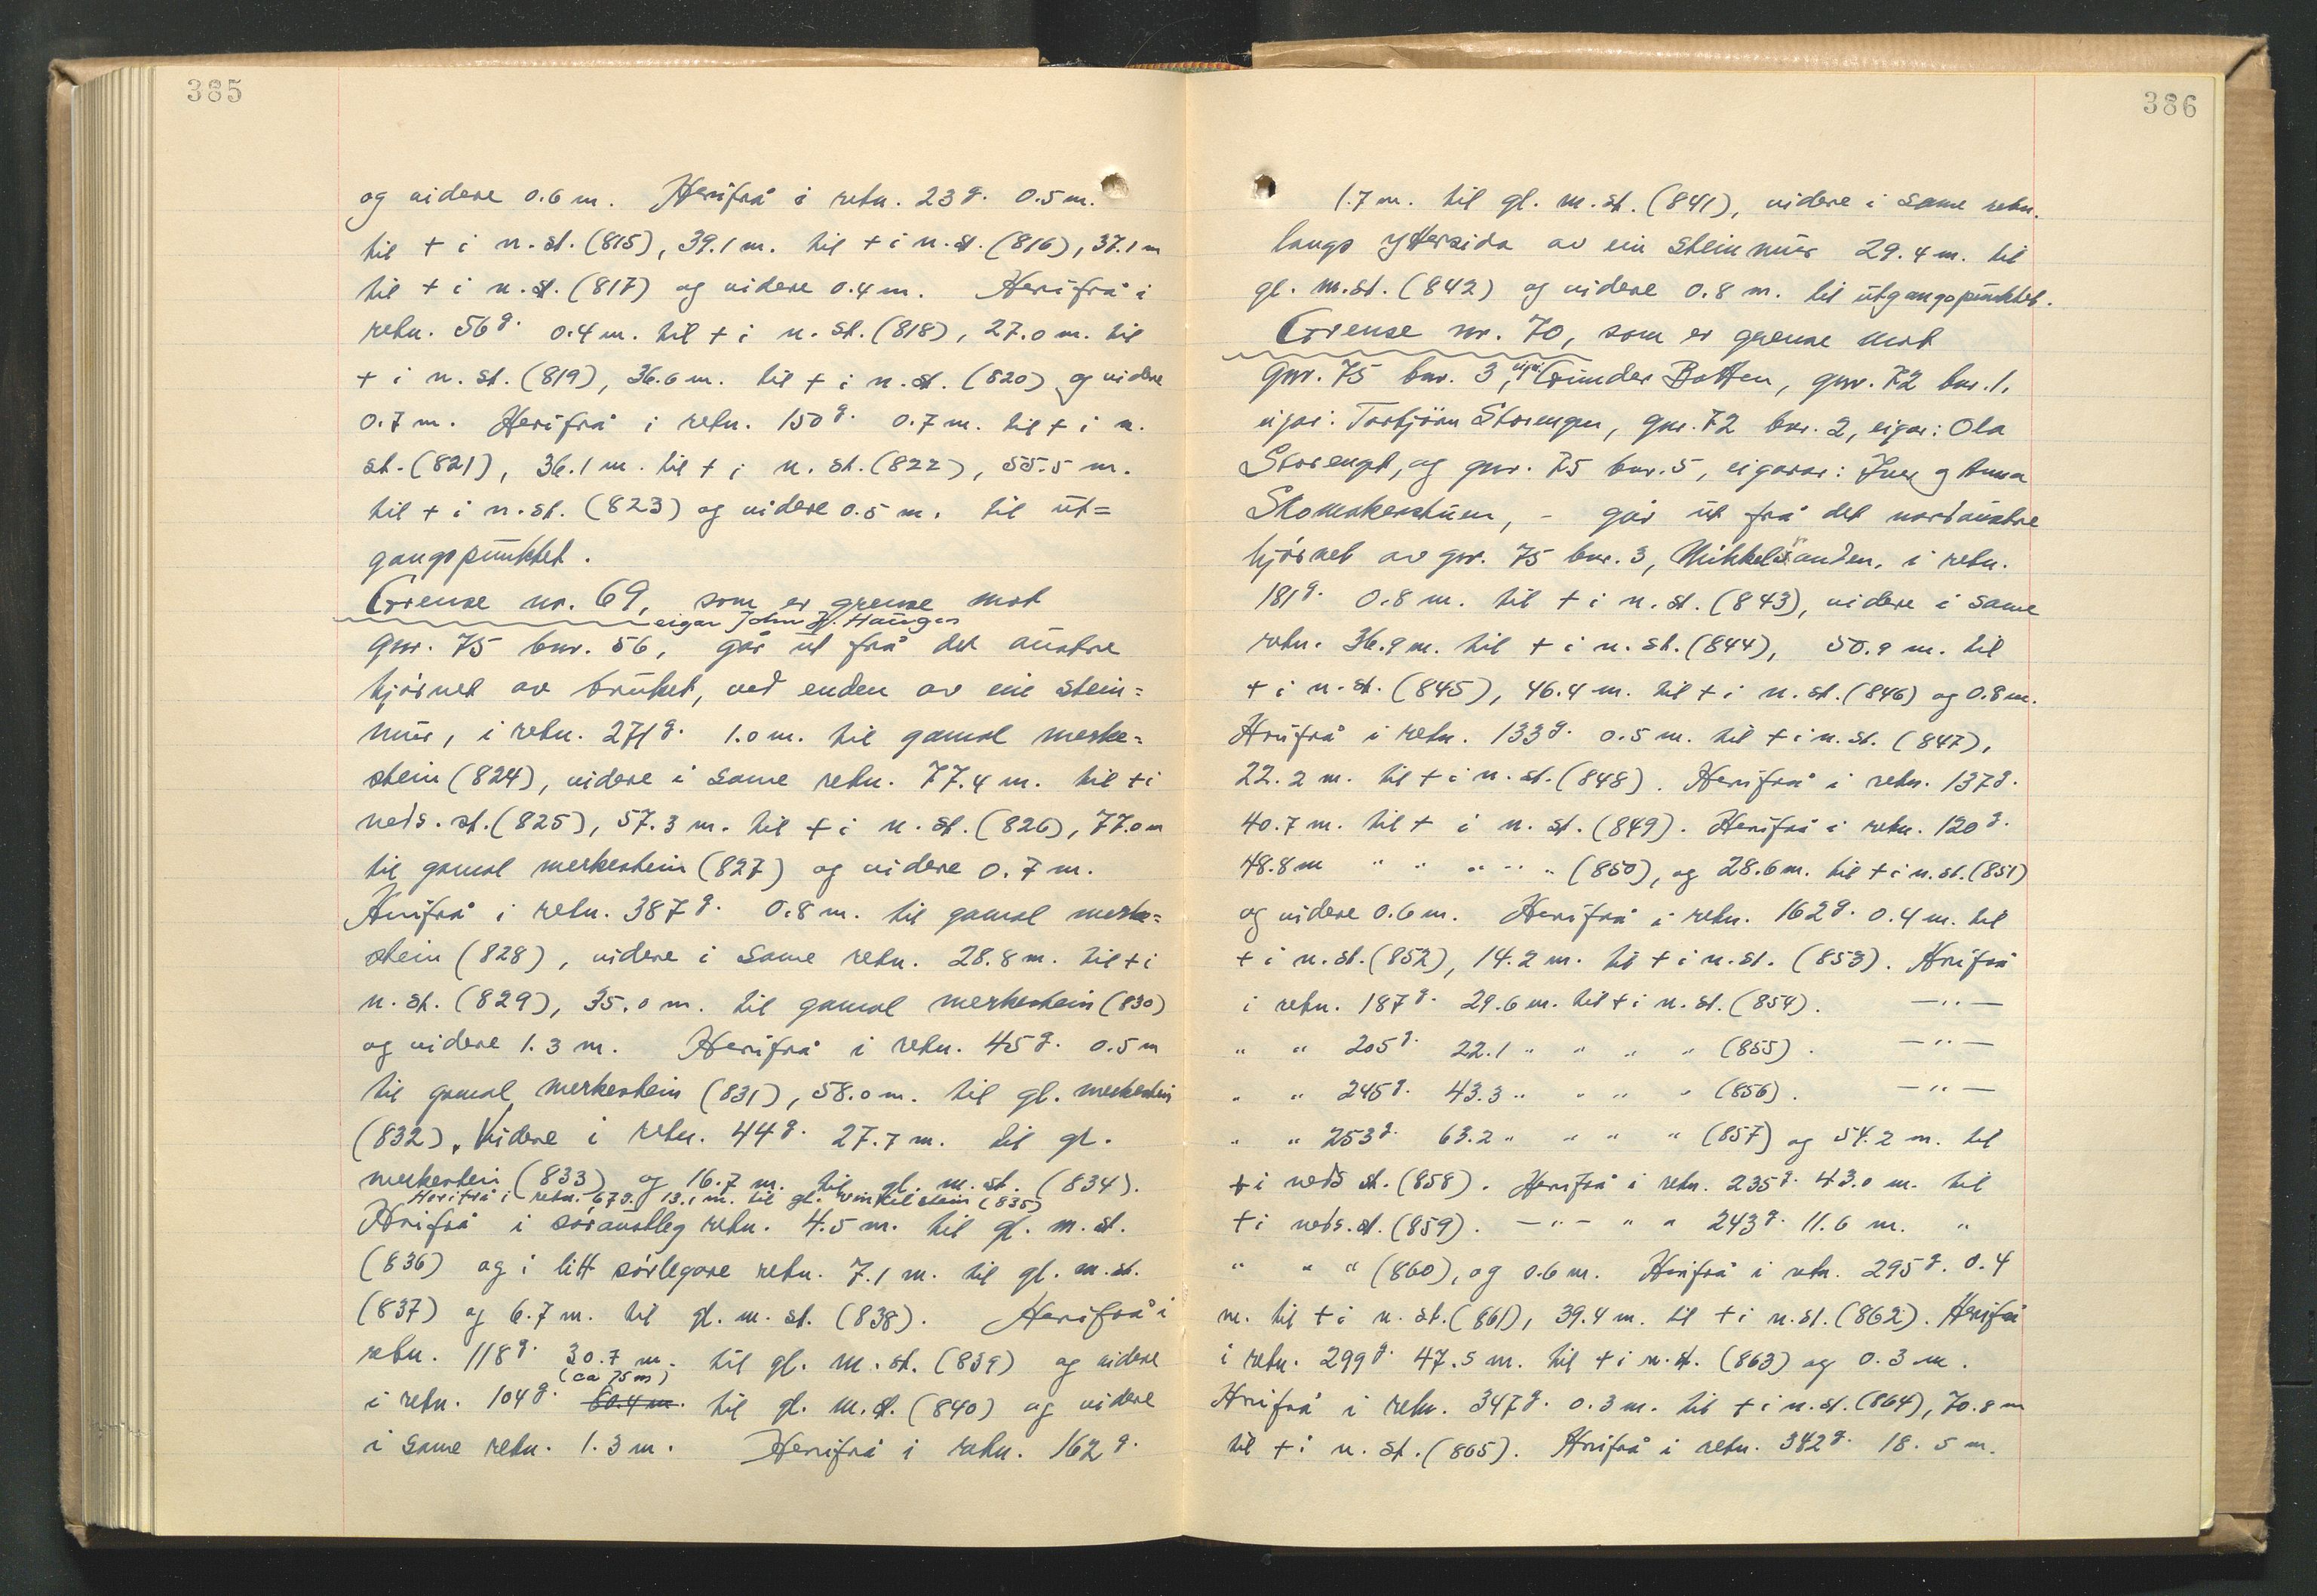 385
og videre 0.6 m. Herifrå i retn. 23g. 0.5 m.
til + i n.st. (815), 39.1 m. til + i n.st. (816), 37.1 m
til + i n.st. (817) og videre 0.4 m. Herifrå i
retn. 56g. 0.4 m. til + i n.st. (818), 27.0 m. til
+ i n.st. (819), 36.6 m. til + i n.st. (820) og videre
0.7 m. Herifrå i retn. 150g. 0.7 m. til + i n.
st. (821), 36.1 m. til + i n.st. (822), 55.5 m.
til + i n.st. (823) og videre 0.5 m. til ut=
gangspunktet.
Grense nr. 69, som er grense mot
eigar John H. Haugen
gnr. 75 bnr. 56, går ut frå det austre
hjørnet av bruket, ved enden av ein stein=
mur, i retn. 271g. 1.0 m. til gamal merke=
stein (824), videre i same retn. 77.4 m. til + i
neds. st. (825), 57.3 m. til + i n.st. (826), 77.0 m
til gamal merkestein (827) og videre 0.7 m.
Herifrå i retn. 387g. 0.8 m. til gamal merke=
stein (828), videre i same retn. 28.8 m. til + i
n.st. (829), 35.0 m. til gamal merkestein (830)
og videre 1.3 m. Herifrå i retn. 45g. 0.5 m
til gamal merkestein (831), 58.0 m. til gl. merkestein
(832). Videre i retn. 44g. 27.7 m. til gl.
merkestein (833) og 16.7 m. til gl. m.st. (834).
Herifrå i retn. 67g. 13.1 m. til gl. vinkelstein (835)
Herifrå i søraustleg retn. 4.5 m. til gl. m.st.
(836) og i litt sørlegare retn. 7.1 m. til gl. m.st.
(837) og 6.7 m. til gl. m.st. (838). Herifrå i
retn. 118g. 30.7 m. til gl. m.st. (839) og videre
(ca 75 m)
i retn. 104g. 60.4 m. til gl. m.st. (840) og videre
i same retn. 1.3 m. Herifrå i retn. 162g.
386
1.7 m. til gl. m.st. (841), videre i same retn.
langs yttersida av ein steinmur 29.4 m. til
gl. m.st. (842) og videre 0.8 m. til utgangspunktet.
Grense nr. 70, som er grense mot
gnr. 75 bnr. 3, eigar: Gunder Botten, gnr. 72 bnr. 1,
eigar: Torbjørn Storengen, gnr. 72 bnr. 2, eigar: Ola
Storengt, og gnr. 75 bnr. 5, eigarar: Iver og Anna
Skomakerstuen, – går ut frå det nordaustre
hjørnet av gnr. 75 bnr. 3, Mikkelsanden, i retn.
181g. 0.8 m. til + i n.st. (843), videre i same
retn. 36.9 m. til + i n.st. (844), 50.9 m. til
+ i n.st. (845), 46.4 m. til + i n.st. (846) og 0.8 m.
Herifrå i retn. 133g. 0.5 m. til + i n.st. (847),
22.2 m. til + i n.st. (848). Herifrå i retn. 137g.
40.7 m. til + i n.st. (849). Herifrå i retn. 120g.
48.8 m " " " " " (850), og 28.6 m. til + i n.st. (851)
og videre 0.6 m. Herifrå i retn. 162g. 0.4 m. til
+ i n.st. (852), 14.2 m. til + i n.st. (853). Herifrå
i retn. 187g. 29.6 m. til + i n.st. (854). —"—
" " 205g. 22.1 " " " " (855). —"—
" " 245g. 43.3 " " " " (856). —"—
" " 253g. 63.2 " " " " (857) og 54.2 m. til
+ i neds st. (858). Herifrå i retn. 235g. 43.0 m. til
+ i neds. st. (859). —"— " " 243g. 11.6 m. "
" " " (860), og 0.6 m. Herifrå i retn. 295g. 0.4
m. til + i n.st. (861), 39.4 m. til + i n.st. (862). Herifrå
i retn. 299g. 47.5 m. til + i n.st. (863) og 0.3 m.
Herifrå i retn. 347g. 0.3 m. til + i n.st. (864), 70.8 m
til + i n.st. (865). Herifrå i retn. 342g. 18.5 m.